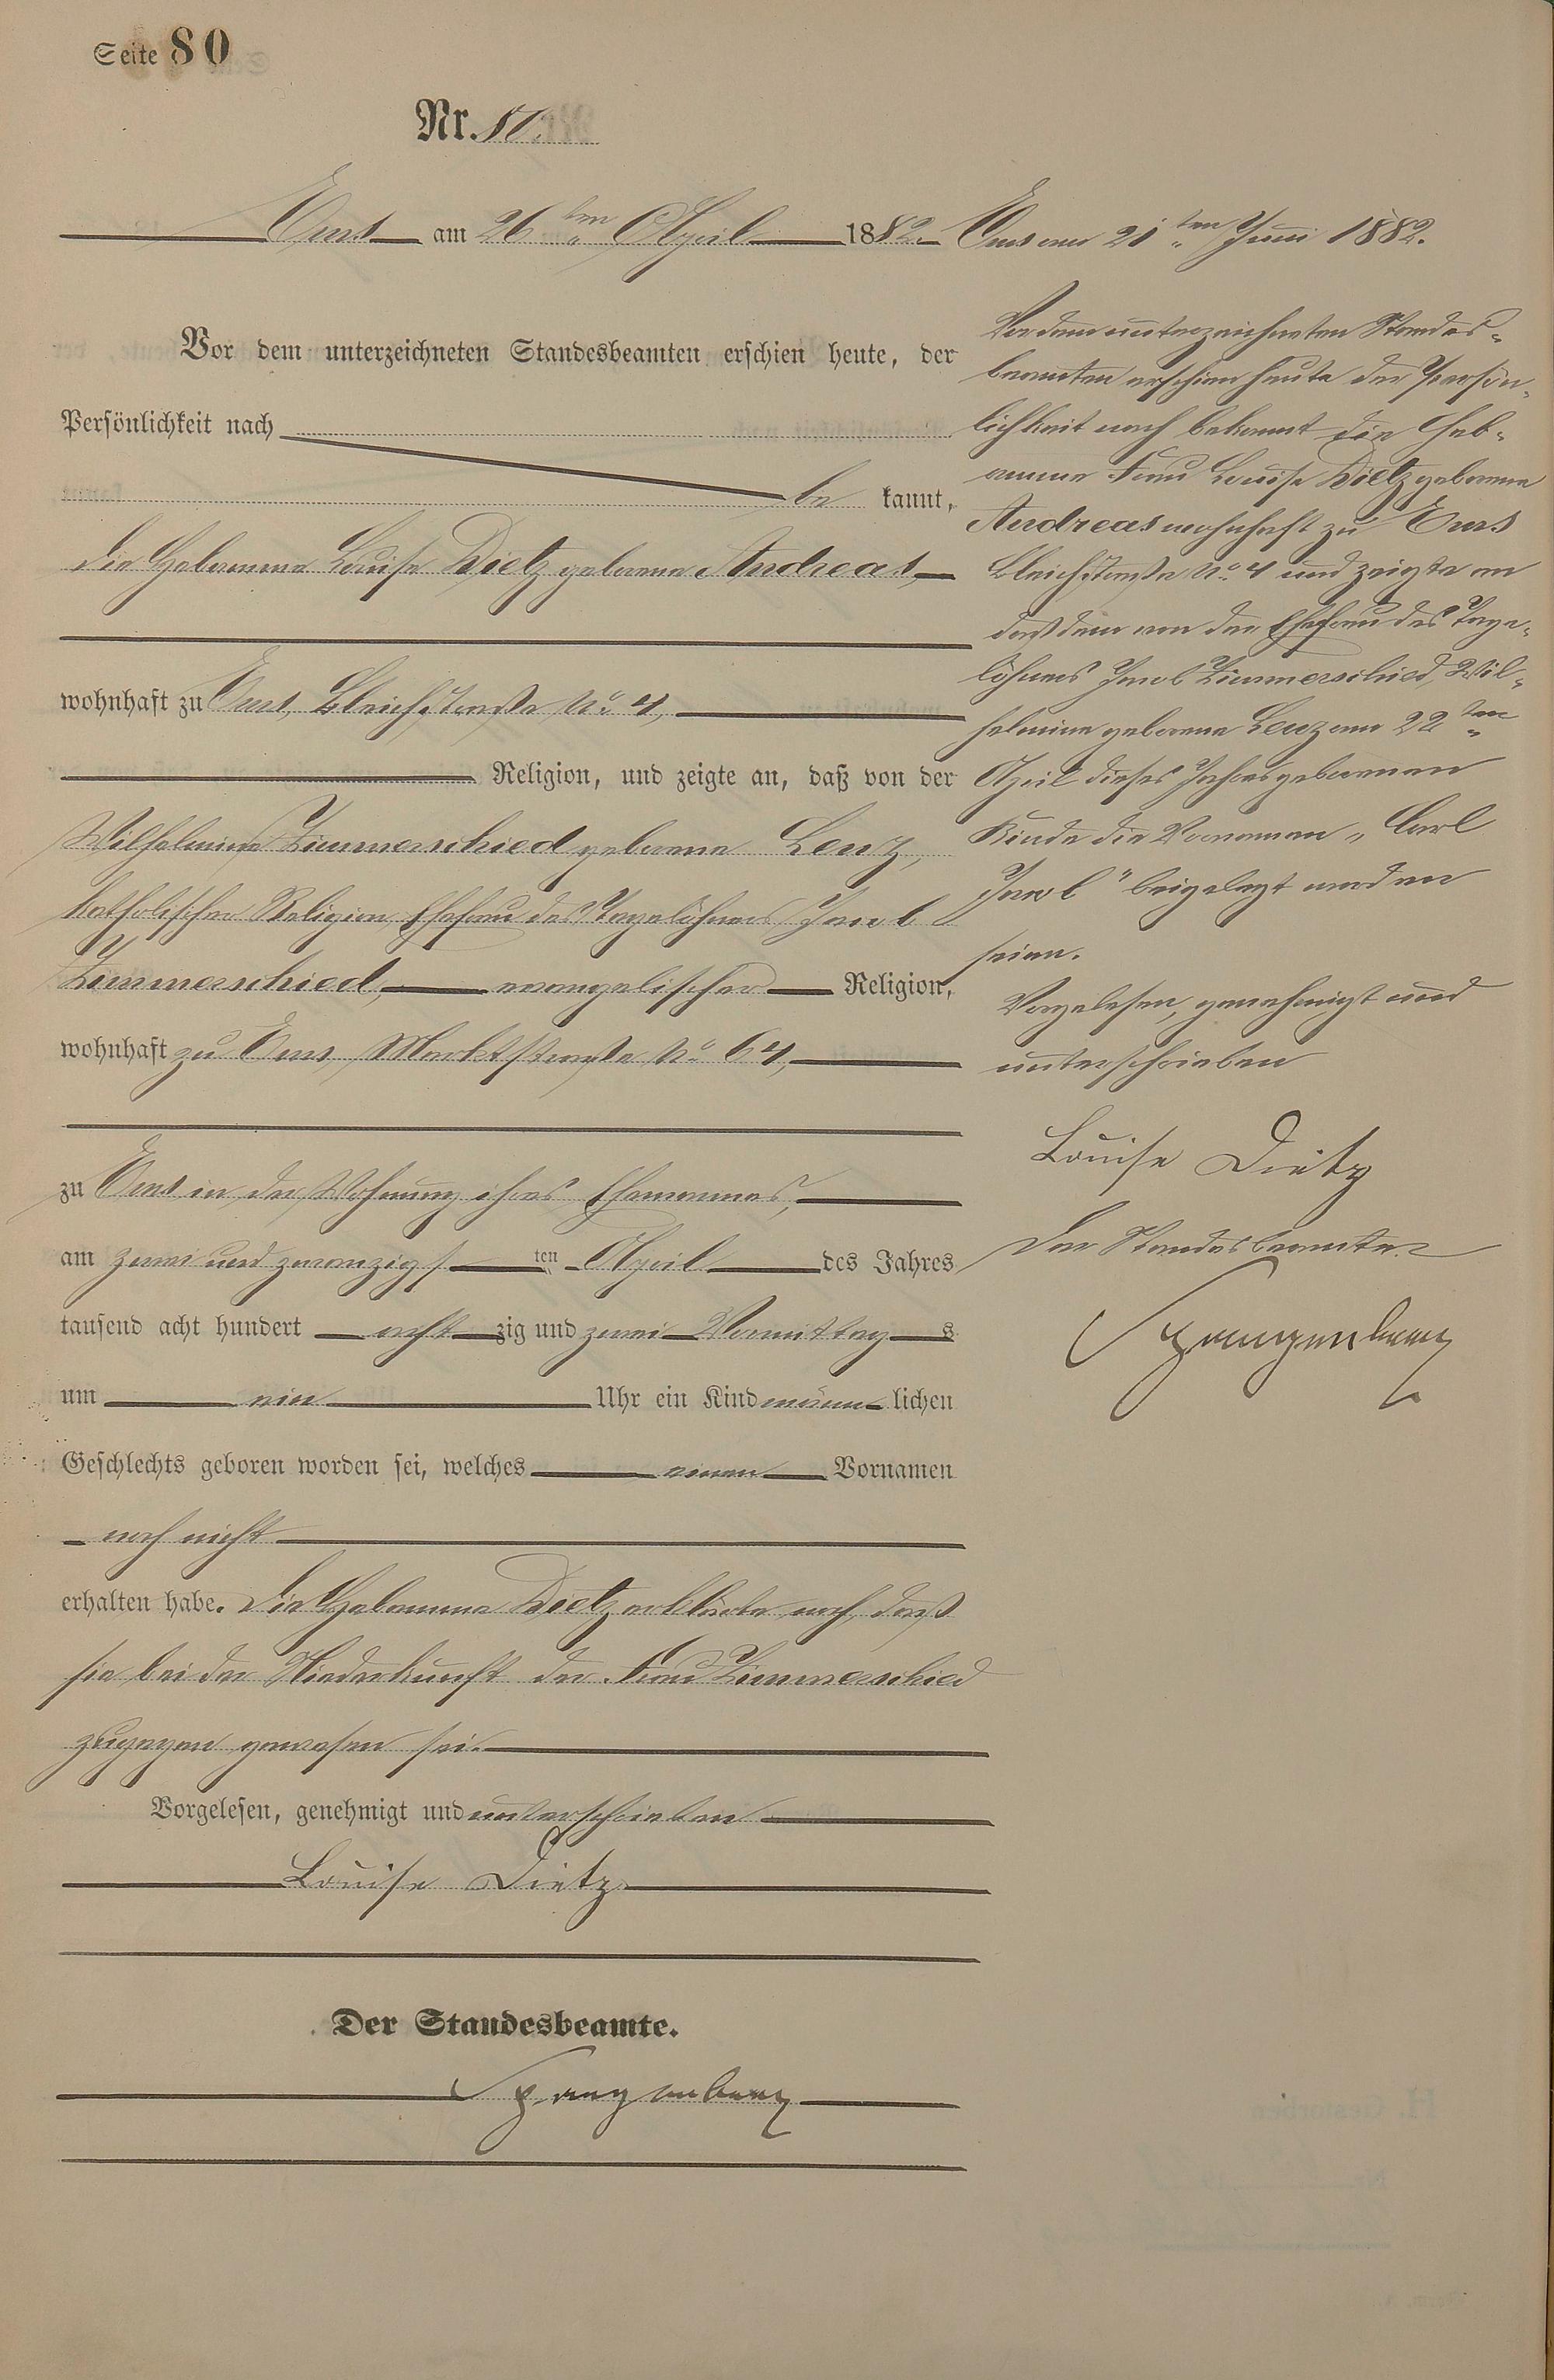 Seite 80
Nr. 80.
Ems am 26ten April 1882.
Vor dem unterzeichneten Standesbeamten erschien heute, der
Persönlichkeit nach
be kannt,
die Hebamme Louise Dietz geborene Andreas,
wohnhaft zu Ems, Bleichstraße No. 4,
Religion, und zeigte an, daß von der
Wilhelmine Zimmerschied geborene Lenz,
katholischer Religion, Ehefrau des Tagelöhners Jacob
Zimmerschied, evangelischer Religion,
wohnhaft zu Ems, Marktstraße No. 64,
zu Ems in der Wohnung ihres Ehemannes,
am zwei und zwanzigsten April des Jahres
tausend acht hundert achtzig und zwei Vormittags
um ein Uhr ein Kind männlichen
Geschlechts geboren worden sei, welches einen Vornamen
noch nicht
erhalten habe. Die Hebamme Dietz erklärte noch, daß
sie bei der Niederkunft der Frau Zimmerschied
zugegen gewesen sei.
Vorgelesen, genehmigt und unterschrieben
Louise Dietz
Der Standesbeamte.
Spangenberg
Ems am 21ten Juni 1882.
Vor dem unterzeichneten Standes-
beamten erschien heute der Persön-
lichkeit nach bekannt die Heb-
amme Frau Louise Dietz geborene
Andreas wohnhaft zu Ems
Bleichstraße No. 4 und zeigte an
daß dem von der Ehefrau des Tage-
löhners Jacob Zimmerschied, Wil-
helmine geborene Lenz am 22ten
April dieses Jahres geborenen
Kinde die Vornamen „Carl
Jacob" beigelegt worden
seien.
Vorgelesen, genehmigt und
unterschrieben
Louise Dietz
Der Standesbeamte
Spangenberg